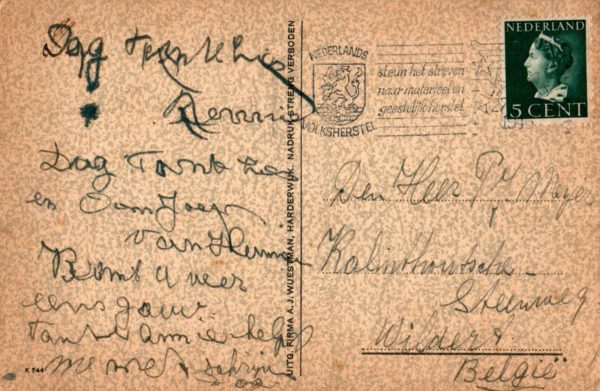 Dag Tante
Dag Tante
en Oom Jaap
van Herman
Komt u weer
eens gauw
Tante Annie helpt
me met schrijven
UITG. FIRMA A. J. WUESTMAN, HARDERWIJK. NADRUK STRENG VERBODEN
K 744
NEDERLANDS
VOLKSHERSTEL
steun het streven
naar materieel en
geestelijk herstel
NEDERLAND
5 CENT
Den Heer P. Meyer
Kalmthoutsche
Steenweg
Wilders
België